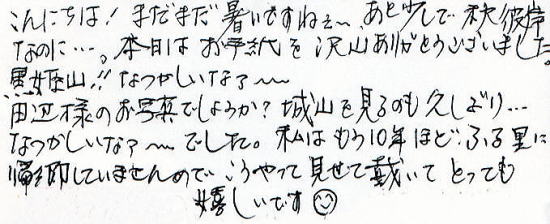 こんにちは! まだまだ暑いですねぇ〜 あと少しで秋彼岸
なのに…。本日はお手紙を沢山ありがとうございました。
黒姫山!! なつかしいなァ〜
田辺様のお写真でしょうか? 城山を見るのも久しぶり…
なつかしいなァ〜でした。私はもう10年ほどふる里に
帰郷していませんので こうやって見せて戴いてとっても
嬉しいです